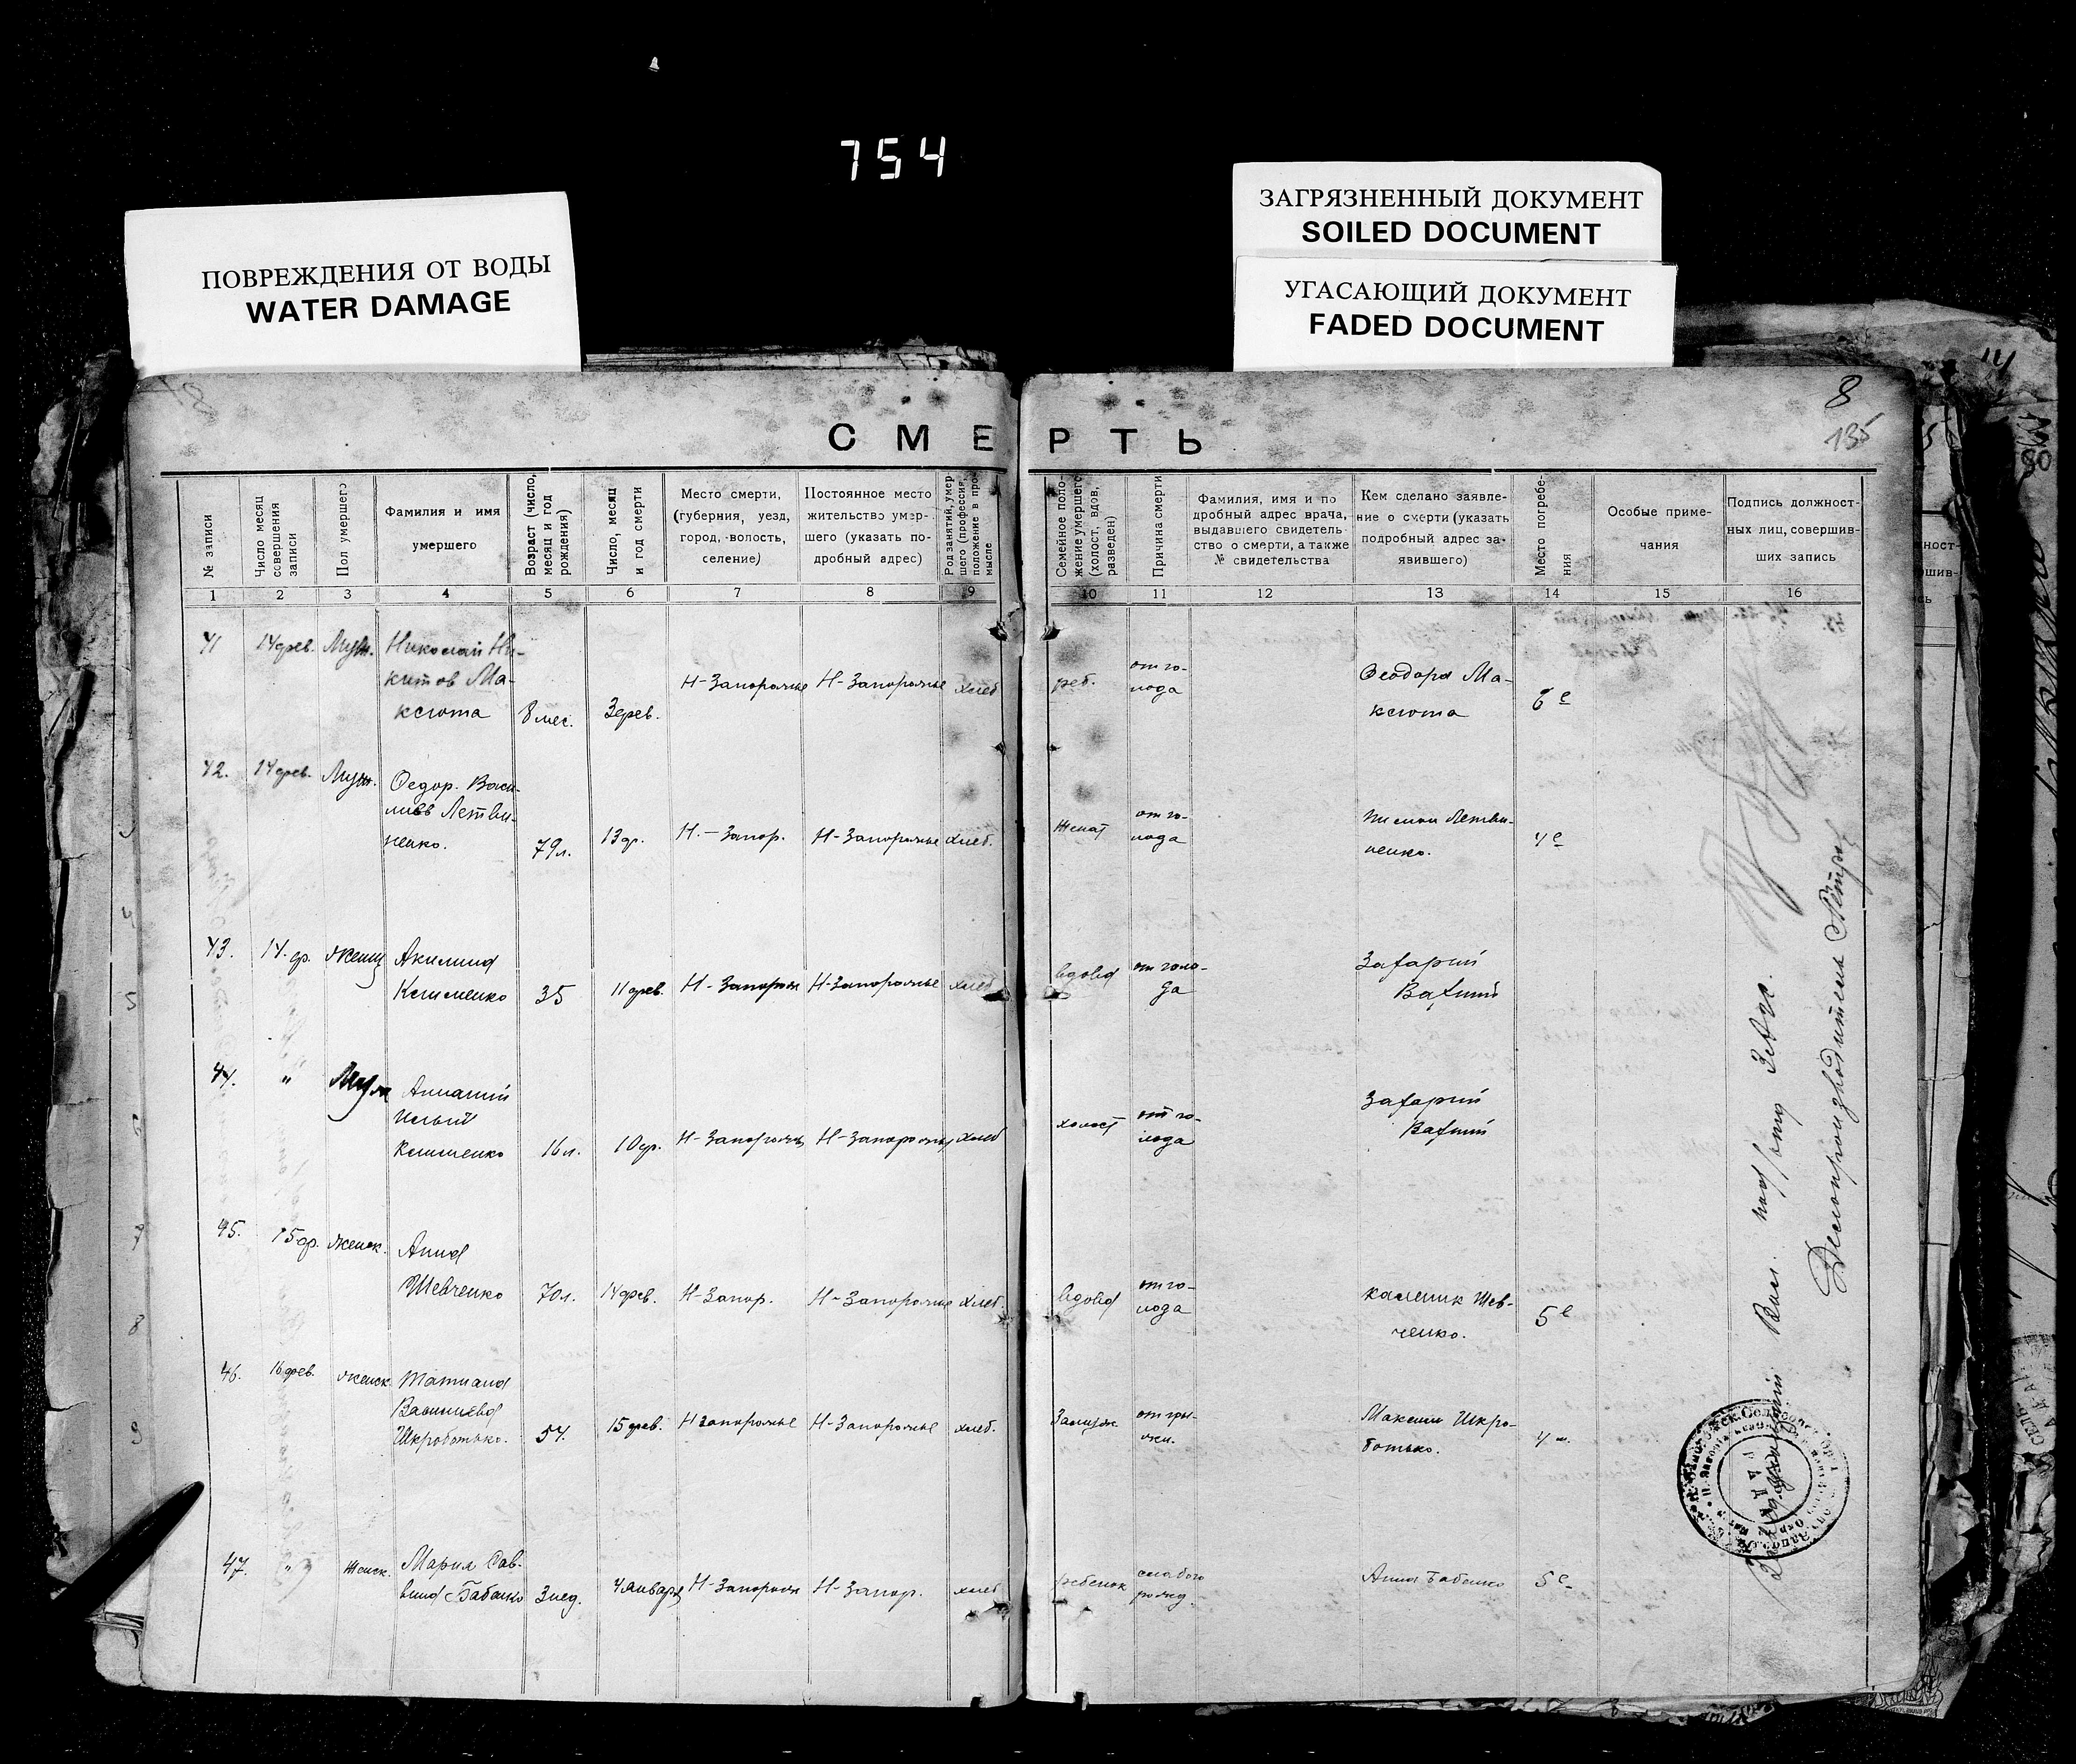 754
ПОВРЕЖДЕНИЯ ОТ ВОДЫ
WATER DAMAGE
ЗАГРЯЗНЕННЫЙ ДОКУМЕНТ
SOILED DOCUMENT
УГАСАЮЩИЙ ДОКУМЕНТ
FADED DOCUMENT
8
135
СМЕРТЬ
№ записи
Число месяц
совершения
записи
Пол умершего
Фамилия и имя
умершего
Возраст (число,
месяц и год
рождения)
Число, месяц
и год смерти
Место смерти,
(губерния, уезд,
город, волость,
селение)
Постоянное место
жительство умер-
шего (указать по-
дробный адрес)
Род занятий, умер-
шего (профессия,
положение в про-
мысле
Семейное поло-
жение умершего
(холост, вдов,
разведен)
Причина смерти
Фамилия, имя и по
дробный адрес врача,
выдавшего свидетель
ство о смерти, а также
№ свидетельства
Кем сделано заявле-
ние о смерти (указать
подробный адрес за-
явившего)
Место погребе-
ния
Особые приме-
чания
Подпись должност-
ных лиц, совершив-
ших запись
1 2 3 4 5 6 7 8 9 10 11 12 13 14 15 16
41 14 фев. Муж. Николай Ни-
китов Ма-
ксюта 8 мес. 3 фев. Н-Запорожье Н-Запорожье хлеб реб. от го-
лода Феодора Ма-
ксюта 6 е
42. 14 фев. Муж. Федор. Васи-
лив Летви-
ненко. 79 л. 13 ф. Н.-Запор. Н-Запорожье хлеб. женат от го-
лода Летви-
ненко. 4 е
43. 14. ф. женщ Акилина
Клименко 35 11 фев. Н-Запорож Н-Запорожье хлеб вдова от голо-
да Захарий
Вахний
44. " Муж Ананий
Клименко 16 л. 10 ф. Н-Запорожье Н-Запорожье хлеб холост от го-
лода Захарий
Вахний
45. 15 ф. женск. Анна
Шевченко 70 л. 14 фев. Н-Запор. Н-Запорожье хлеб. вдова от го-
лода Каленик Шев-
ченко. 5 е
46. 16 фев. женск Татиана
Василиева
Шкроботько. 54. 15 фев. Н Запорожье Н-Запорожье хлеб. Замуж. от гры-
жи. Максим Шкро-
ботько. 4
47. " женск. Мария Сав-
вина Бабенко 3 нед. 4 января Н-Запорож Н-Запор. хлеб ребенок слабого
рожд. Анна Бабенко 5 е
Делопроизводитель